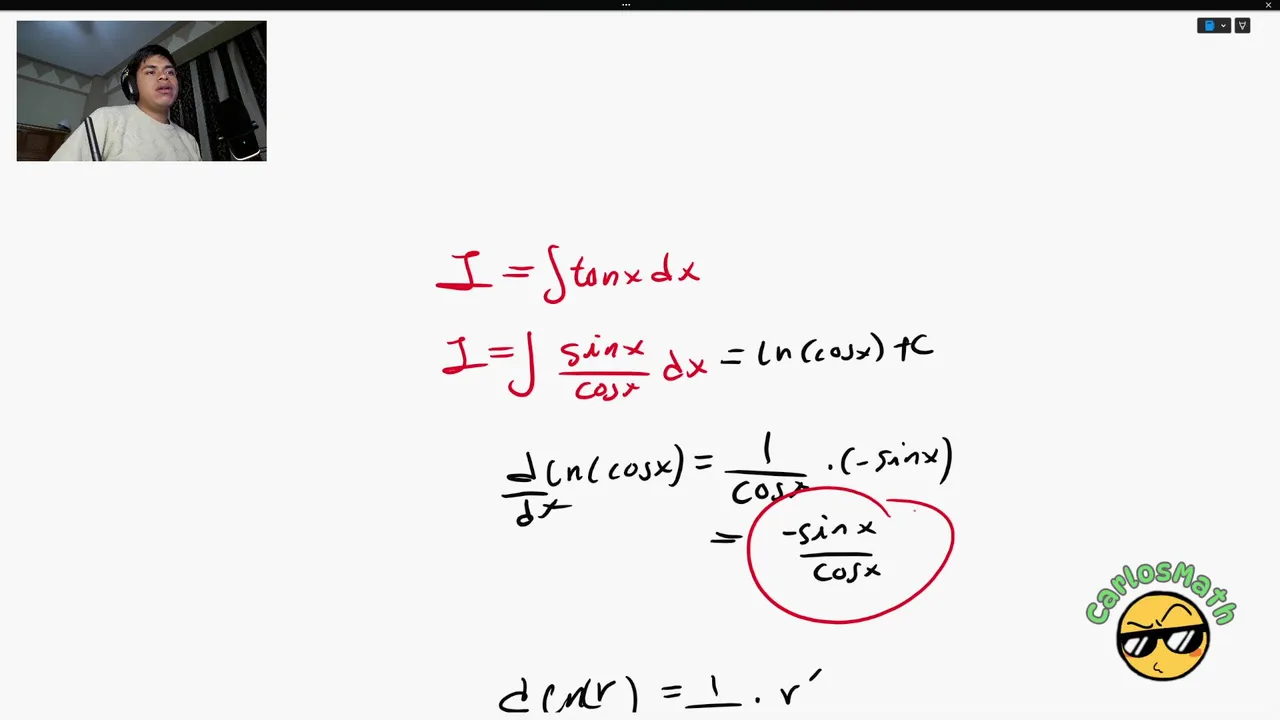 I = ∫tanx dx
I = ∫ sinx/cosx dx = ln(cosx) + C
d/dx ln(cosx) = 1/cosx · (-sinx)
= -sinx/cosx
CarlosMath
d ln(r) = 1 · r'